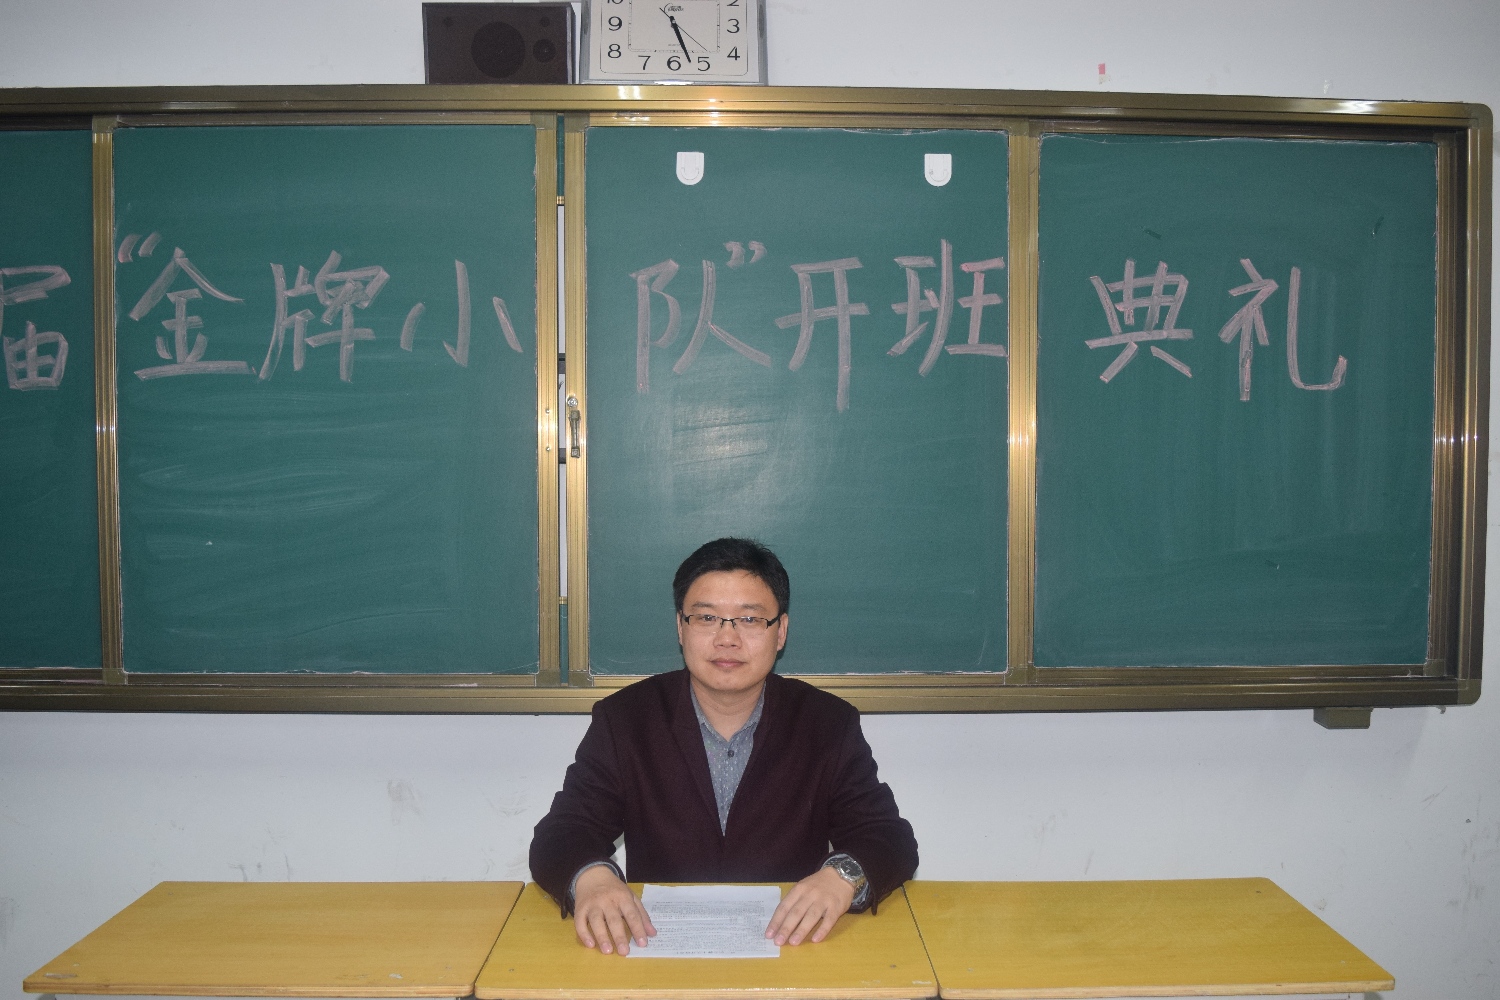 10 2
9 3
8 7 6 5 4
届“金牌小队”开班典礼